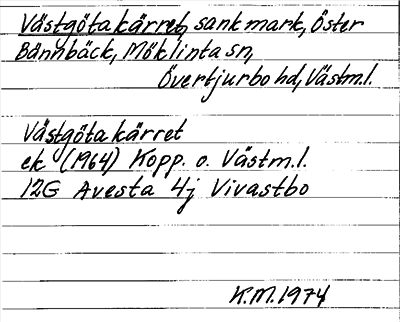 Västgötakärret, sank mark, Öster
Bännbäck, Möklinta sn,
Övertjurbo hd, Västm.l.
Västgötakärret
ek (1964) Kopp. o. Västm.l.
12G Avesta 4j Vivastbo
K.M. 1974